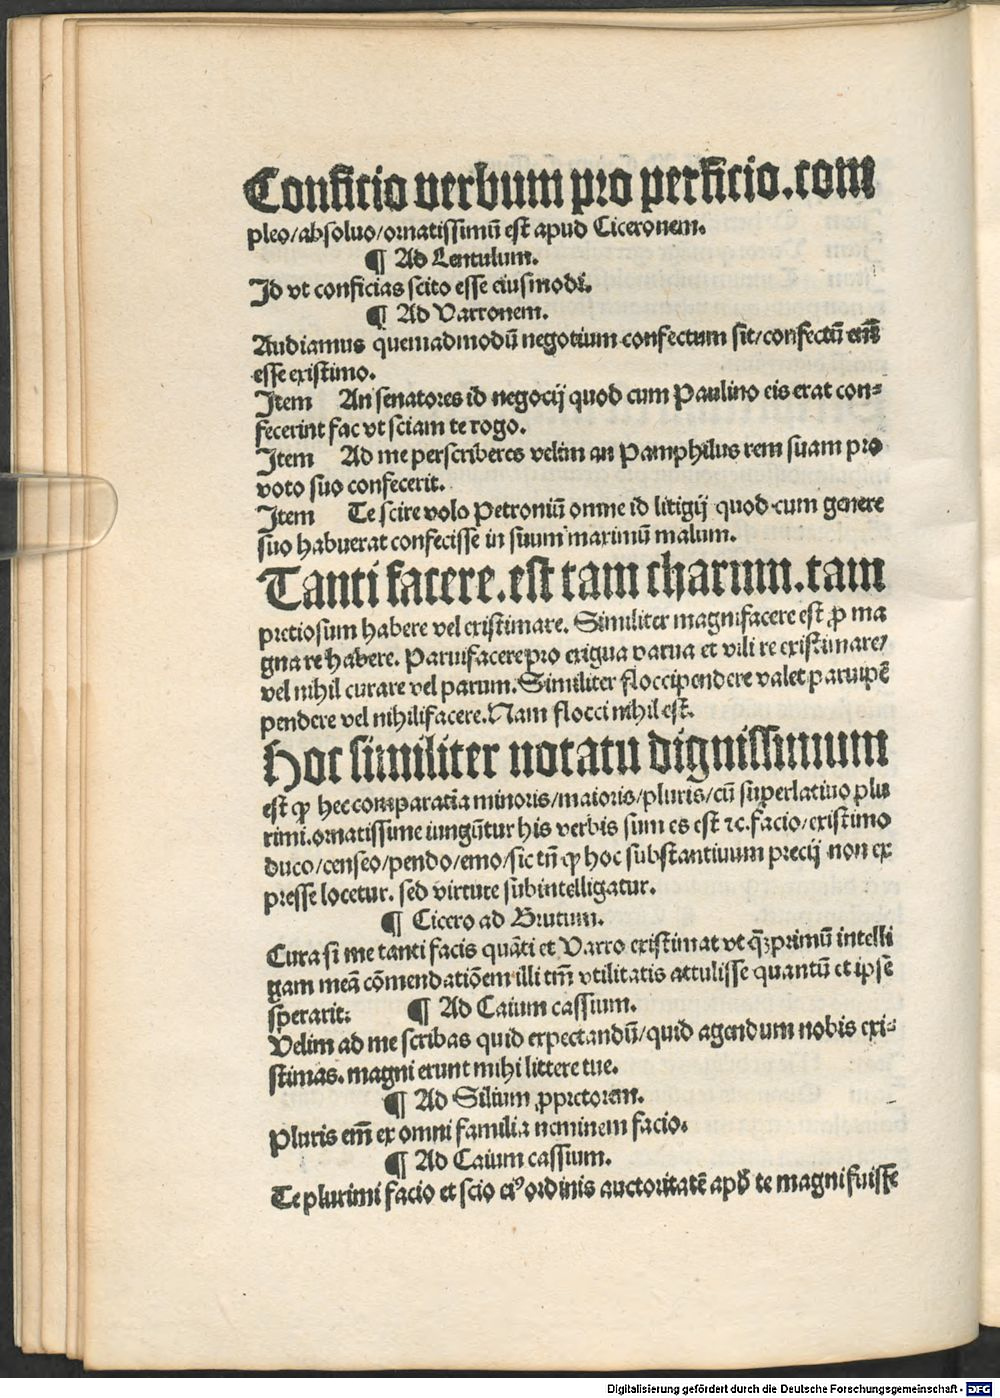 Conficio verbum pro perficio.com
pleo/absoluo/ornatissimū est apud Ciceronem.
¶ Ad Lentulum.
Id vt conficias scito esse eiusmodi.
¶ Ad Varronem.
Audiamus quemadmodū negotium confectum sit/confectū em̄
esse existimo.
Item An senatores id negocij quod cum Paulino eis erat con⸗
fecerint fac vt sciam te rogo.
Item Ad me perscriberes velim an Pamphilus rem suam pro
voto suo confecerit.
Item Te scire volo Petroniū omne id litigij quod cum genere
suo habuerat confecisse in suum maximū malum.
Tanti facere.est tam charum.tam
pretiosum habere vel existimare. Similiter magnifacere est ꝓ ma
gna re habere. Paruifacere pro exigua parua et vili re existimare/
vel nihil curare vel parum. Similiter floccipendere valet paruipē
pendere vel nihilifacere. Nam flocci nihil est.
Hoc similiter notatu dignissimum
est ꝙ hec comparatiua minoris/maioris/pluris/cū superlatiuo plu
rimi.ornatissime iungūtur his verbis sum es est ⁊c.facio/existimo
duco/censeo/pendo/emo/sic tn̄ ꝙ hoc substantiuum precij non ex
presse locetur. sed virtute subintelligatur.
¶ Cicero ad Brutum.
Cura si me tanti facis quāti et Varro existimat vt q̄ꝫprimū intelli
gam meā cōmendatiōem illi tm̄ vtilitatis attulisse quantū et ipse
sperarit: ¶ Ad Caium cassium.
Velim ad me scribas quid expectandū/quid agendum nobis exi⸗
stimas. magni erunt mihi littere tue.
¶ Ad Silium ꝓpretorem.
Pluris em̄ ex omni familia neminem facio.
¶ Ad Caium cassium.
Te plurimi facio et scio eiꝰ ordinis auctoritatē apd̄ te magni fuisse
Digitalisierung gefördert durch die Deutsche Forschungsgemeinschaft - DFG